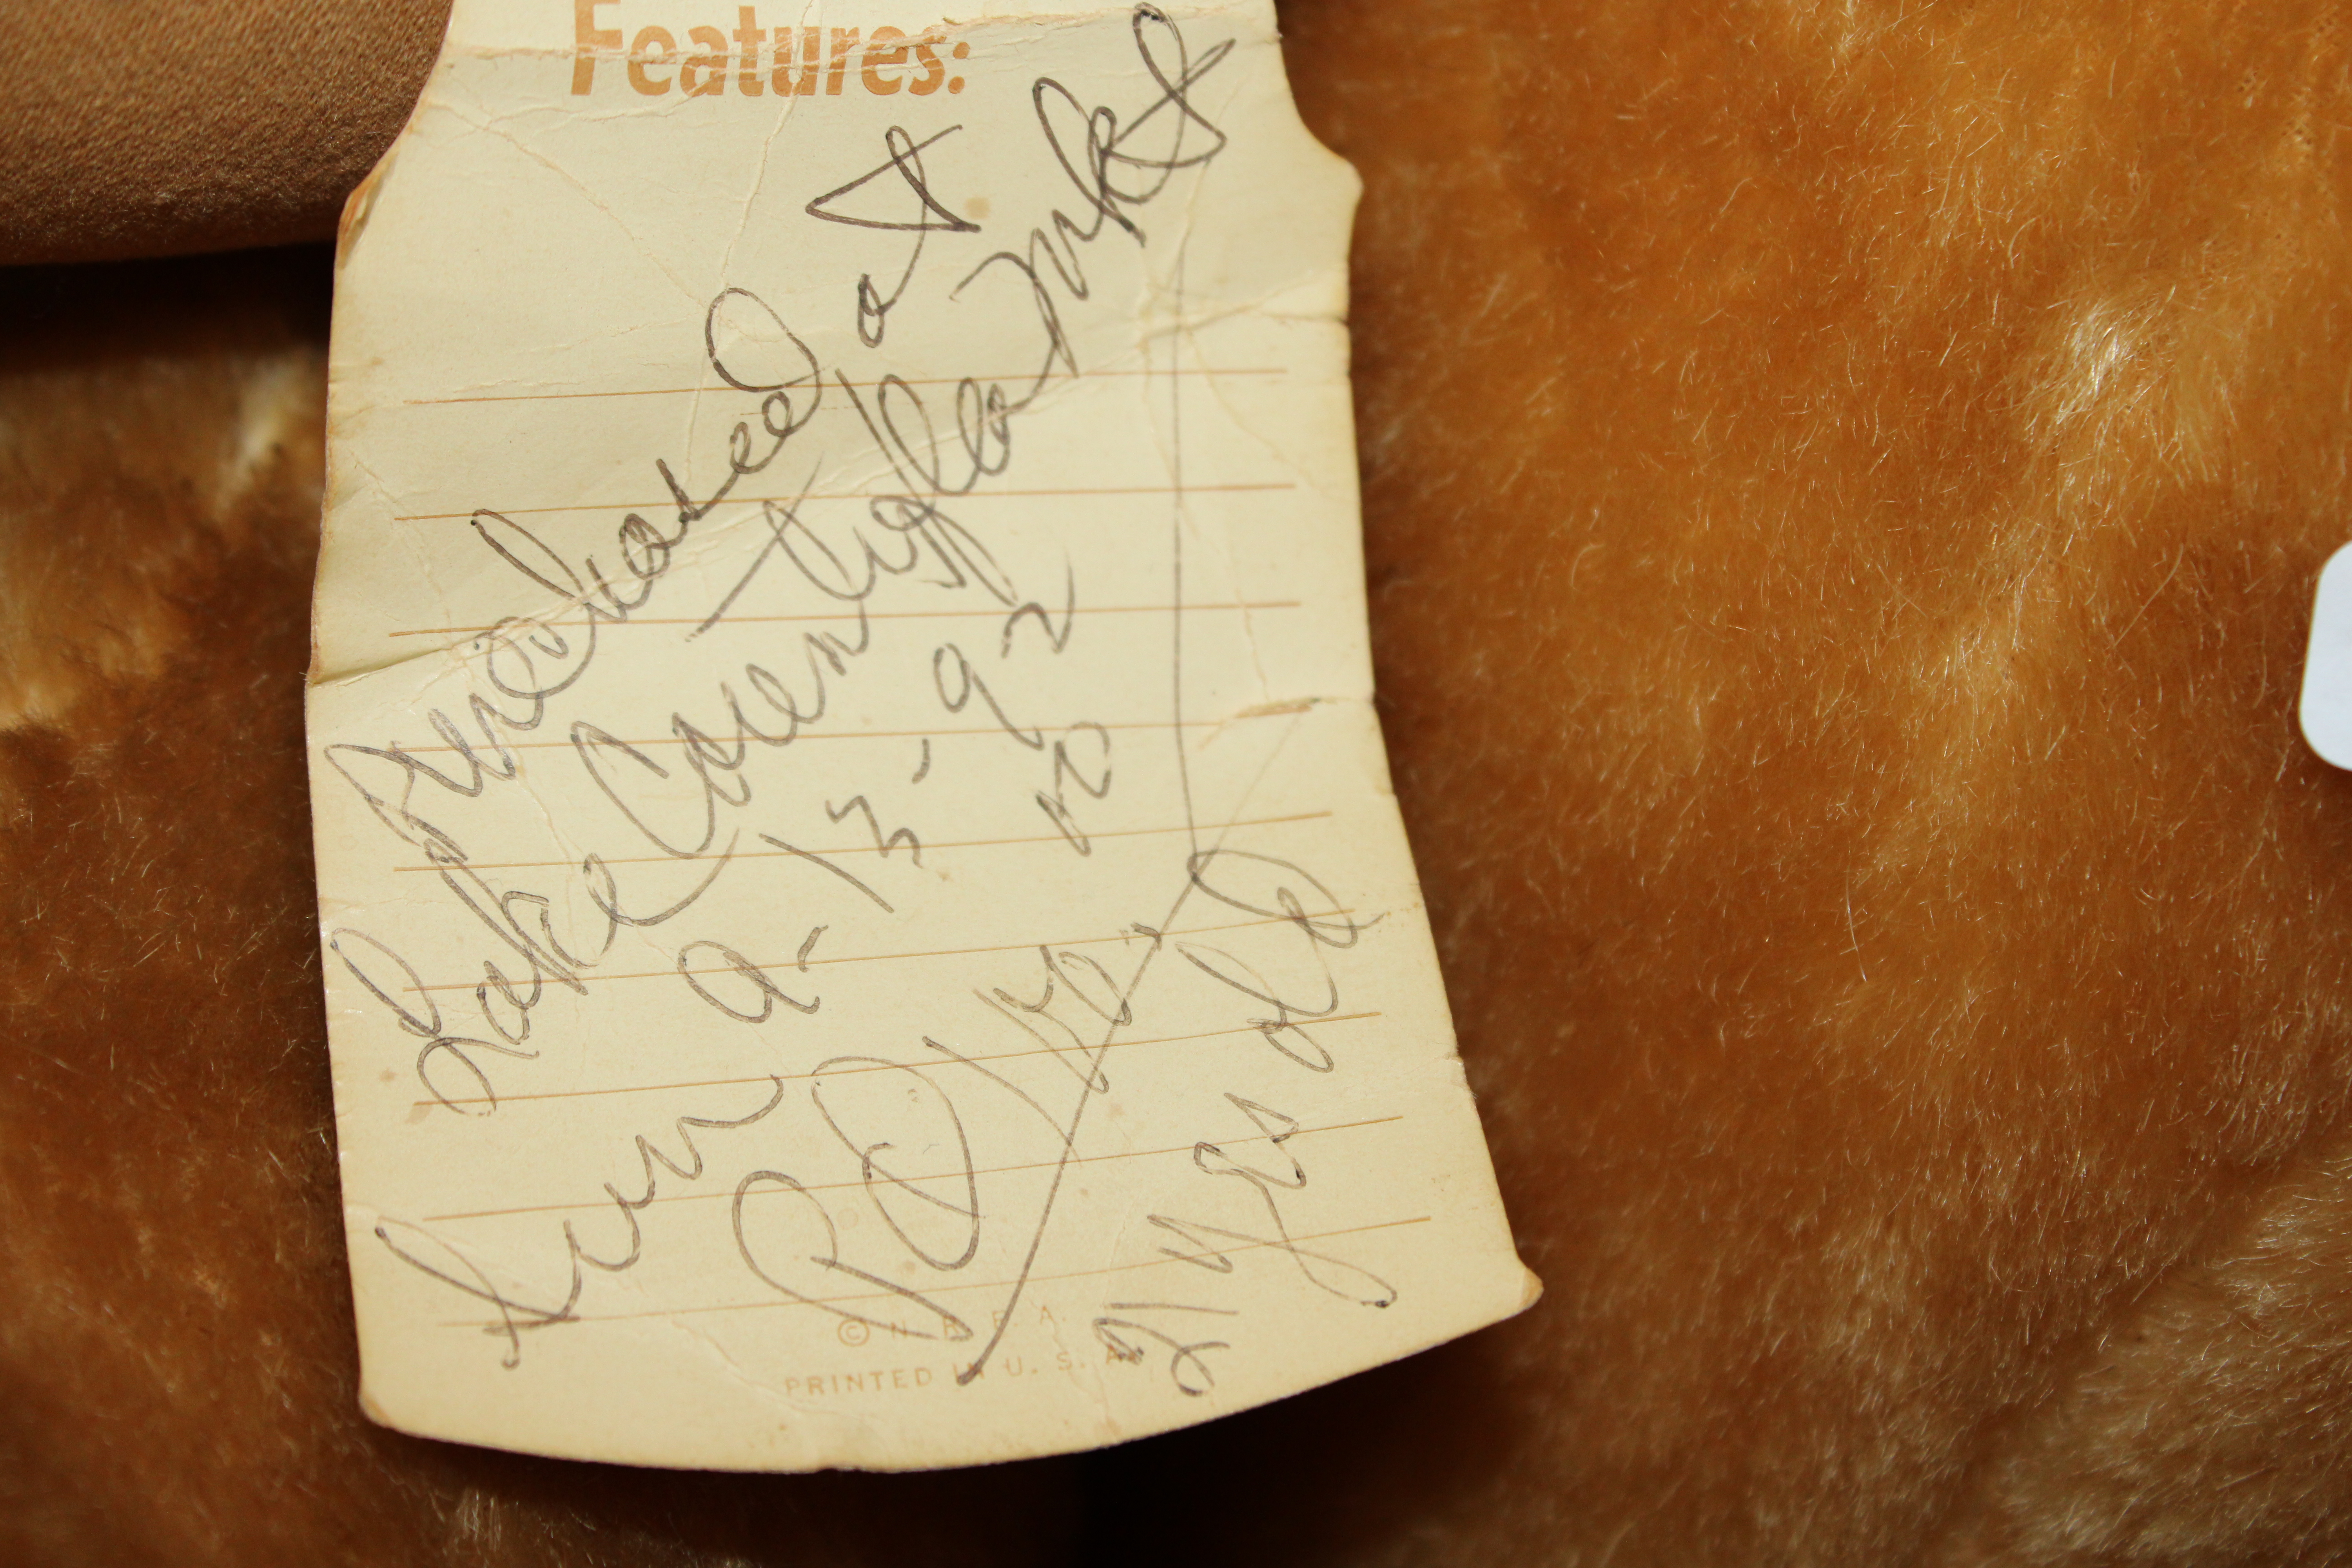 Features:
Purchased at
Lake Coventry flea mkt
Sun 9-13-92
PD 110.00
21 yrs old
© N. B. E. A.
PRINTED IN U. S. A.